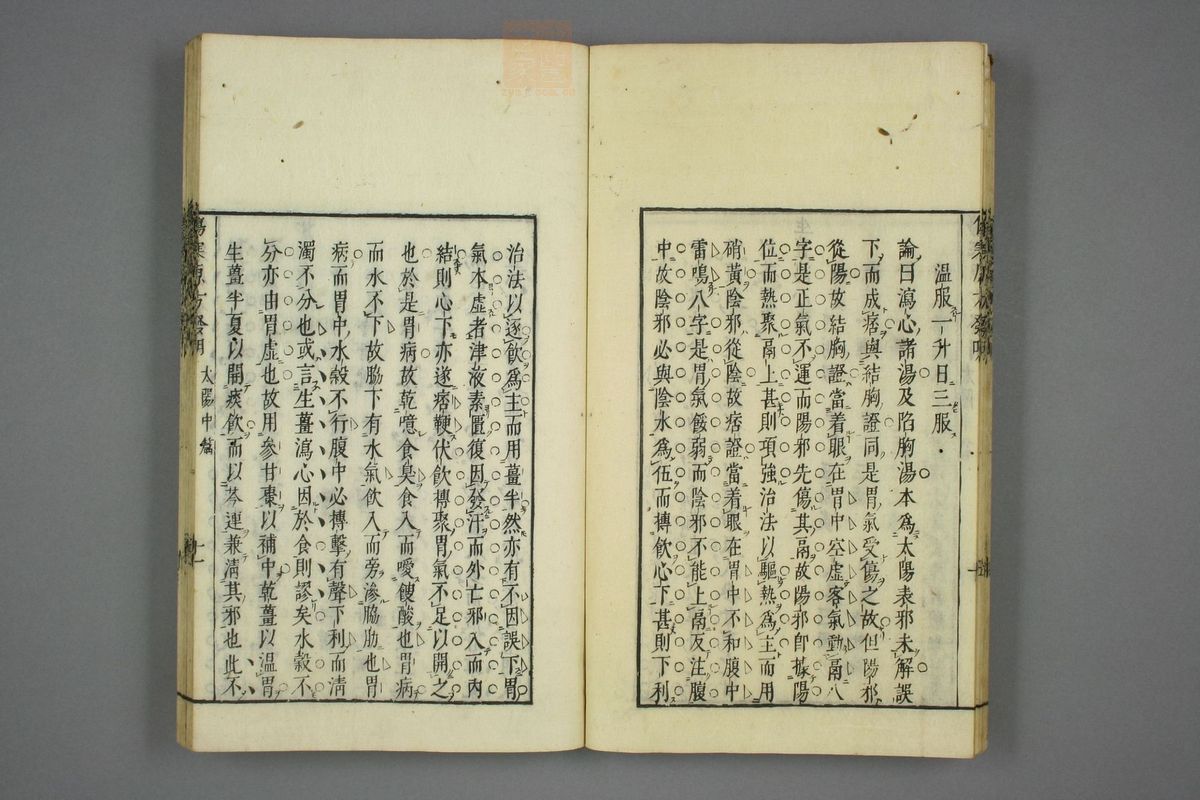 溫服一升日三服
論曰瀉心諸湯及陷胸湯本爲太陽表邪未解誤
下而成痞與結胸證同是胃氣受傷之故但陽邪
從陽故結胸證當着眼在胃中空虛客氣動膈八
字是正氣不運而陽邪先傷其膈故陽邪卽據陽
位而熱聚膈上甚則項強治法以驅熱爲主而用
硝黃陰邪從陰故痞證當着眼在胃中不和腹中
雷鳴八字是胃氣餒弱而陰邪不能上膈反注腹
中故陰邪必與陰水爲伍而摶飮心下甚則下利
治法以逐飮爲主而用薑半然亦有不因誤下胃
氣本虛者津液素匱復因發汗而外亡邪入而內
結則心下亦遂痞鞕伏飮摶聚胃氣不足以開之
也於是胃病故乾噫食臭食入而噯餿酸也胃病
而水不下故脇下有水氣飮入而旁滲脇肋也胃
病而胃中水穀不行腹中必摶擊有聲下利而淸
濁不分也或言生薑瀉心因於食則謬矣水穀不
分亦由胃虛也故用參甘棗以補中乾薑以溫胃
生薑半夏以開痰飮而以芩連兼淸其邪也此不
太陽中篇